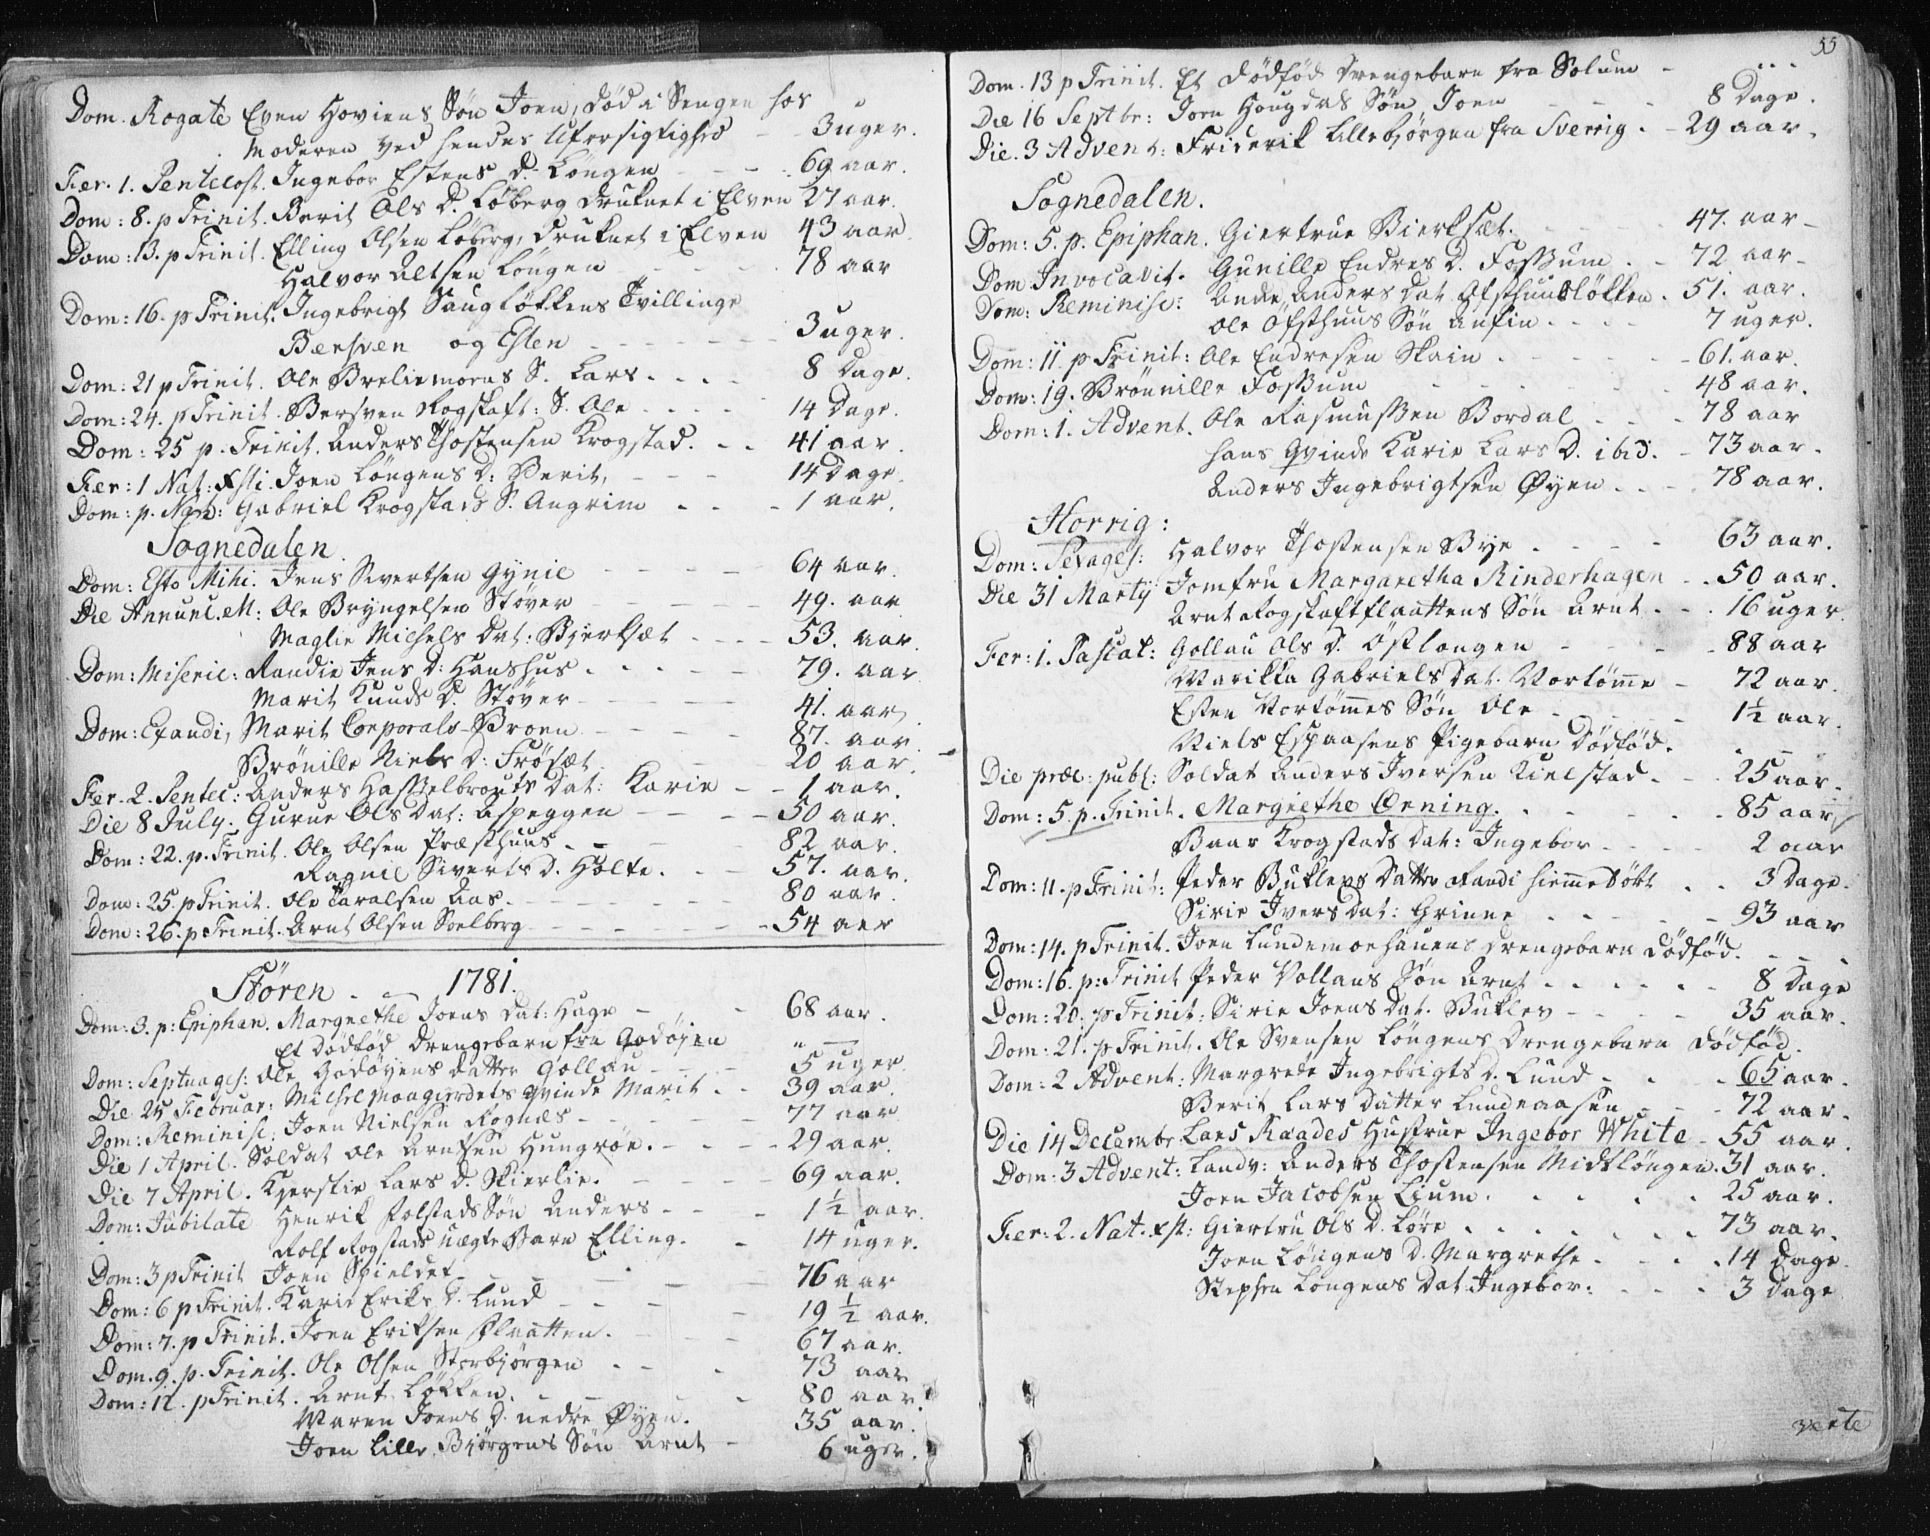 Dom. Rogate Even Hoviens Søn Joen, død i Sengen hos
Moderen ved hendes Uforsigtighed - - 3 uger.
Fer. 1. Pentecost. Ingebor Estens D. Løngen - - - 69 aar.
Dom: 8. p Trinit. Berit Ols D. Løberg druknet i Elven 27 aar.
Dom: 13. p Trinit. Elling Olsen Løberg, druknet i Elven 43 aar
Halvor Altsen Løngen - - - - 78 aar
Dom: 16. p Trinit. Ingebrigt Haugløkkens Tvillinge
Bersven og Esten - - - - - - 3 uger.
Dom: 21 p Trinit. Ole Breliemoens S. Lars. - - - 8 Dage.
Dom: 24. p Trinit. Bersven Rogstaft: S. Ole - - - - 14 Dage.
Dom: 25 p. Trinit. Anders Thostensen Krogstad. - - 41 aar.
Fer: 1 Nat: Xsti. Joen Løngens D: Berit, - - - 14 Dage.
Dom: p. Nat: Gabriel Krogstads S. Angrim - - - 1 aar.
Sognedalen
Dom: Esto Mihi. Jens Sivertsen Gynie - - - - 64 aar.
Die Annunc. M: Ole Bryngelsen Støver - - - - 49. aar
Maglie Michels Dat: Bjerksæt - - - - 53. aar.
Dom: Miseric: Randie Jens D: Hanshus - - - - - 79. aar.
Marit Knuds D. Støver - - - - - 41. aar.
Dom: Exaudi, Marit Corporals-Broen - - - - 87. aar.
Brønille Niels D: Frøsæt - - - - 20 aar.
Fer. 2. Pentec: Anders Hasselbrouts Dat: Karie - - 1 aar.
Die 8 July. Gurue Ols Dat: Aspeggen - - - - 50 aar.
Dom: 22. p. Trinit. Ole Olsen Præsthuus - - - - 82 aar.
Ragnil Siverts D. Holte. - - - 57. aar.
Dom: 25. p Trinit. Ole Taralsen Aas. - - - - - - 80 aar.
Dom: 26. p Trinit. Arnt Olsen Soelberg - - - - - - 54 aar
Støren - 1781.
Dom: 3. p: Epiphan. Margrethe Joens Dat: Hage - - 68 aar.
Et dødfød Drengebarn fra Godøyen " —
Dom: Septuages: Ole Godøyens Datter Gollau - - - 5 uger.
Die 25 Februar: Michel Moogjerdets Qvinde Marit - - 39 aar.
Dom: Reminisc: Joen Nielsen Rognæs - - - - - 77 aar
Die 1 April. Soldat Ole Arntsen Hungrøe. - - - 29 aar.
Die 7 April. Kjerstie Lars D. Skierlie. - - - - 69 aar.
Dom: Jubilate Henrik Rolstads Søn Anders - - - 1 ½ aar.
Rolf Rogstads uægte Barn Elling. - 14 uger.
Dom: 3 p Trinit Joen Spieldet - - - - - - 76 aar
Dom: 6 p Trinit. Karie Eriks D. Lund - - - - 19 ½ aar.
Dom: 7. p Trinit. Joen Eriksen Flaatten. - - - 67 aar.
Dom. 9. p. Trinit. Ole Olsen Storbjørgen - - - 73 aar
Dom: 12. p Trinit. Arnt Løkken. - - - - 80 aar.
Maren Joens D. nedre Øyen. 35 aar.
Joen Lille Bjørgens Søn Arnt - 6 uger.
55
Dom. 13 p Trinit. Et dødfød Drengebarn fra Solum - ...
Die 16 Septbr: Joen Hougdals Søn Joen - - - 8 Dage.
Die. 3 Advent: Friderik Lillebjørgen fra Sverrig. - 29 aar.
Sognedalen.
Dom: 5. p. Epiphan. Giertrue Bierksæt. - - - - 47. aar -
Dom Invocavit. Gunille Endres D. Fossum. - - 72 aar -
Dom: Reminisc: Anne Anders Dat Ofsthuusløkken. 51. aar.
Ole Ofsthuus Søn Anfin. - - - 7 uger.
Dom: 11. p Trinit: Ole Endresen Skain - - - - - 61. aar.
Dom: 19. Brønnille Fossum - - - - - 48 aar.
Dom: 1. Advent. Ole Rasmussen Bordal - - - 78 aar
Hans Qvinde Karie Lars D. ibid. - 73 aar.
Anders Ingebrigtsen Øyen - - - 78 aar.
Horrig:
Dom: Sexages: Halvor Thostensen Bye - - - - 63 aar.
Die 31 Marty Jomfru Margaretha Rinderhagen - - 50 aar.
Arnt Rogstaftflaattens Søn Arnt - - - 16 uger.
Fer: 1. Pascat: Gollau Ols D. Østlongen - - - 88 aar
Marikka Gabriels Dat. Vortømme - 72 aar.
Esten Vortømmes Søn Ole - - - - 1½ aar.
Niels Espaasens Pigebarn dødfød. - - -
Die præc: publ: Soldat Anders Iversen Kielstad. - - 25 aar.
Dom: 5. p. Trinit. Margrethe Ørning. - - - - - 85 aar
Baar Krogstads Dat: Ingebor - - - - 2 aar
Dom: 11. p Trinit: Peder Buklevs Datter Randi hiemmedøbt - - 3 Dage.
Sirie Ivers Dat: Grinne - - - - - 93 aar
Dom: 14. p Trinit. Joen Lundemoehauens Drengebarn dødfød. - - - -
Dom: 16. p: Trinit Peder Vollans Søn Arnt - - - - - 8 Dage
Dom: 20. p Trinit: Sirie Joens Dat. Buklev - - - - 35 aar.
Dom: 21. p Trinit. Ole Svensen Løngens Drengebarn dødfød.
Dom: 2 Advent: Margrete Ingebrigts D. Lund - - - 65 aar.
Berit Lars Datter Lundeaasen - - - 72 aar.
Die 14 Decembr Lars Raades Hustrue Ingebor White - 55 aar.
Dom: 3 Advent: Landv: Anders Thostensen Midtløngen. 31 aar.
Joen Jacobsen Lium. - - - - 25 aar.
Fer: 2. Nat. Xst: Giertru Ols D. Løre - - - - - - 73 aar.
Joen Løngens D. Margrethe - - - - 14 Dage.
Stephen Longens Dat Ingebor: - - - 3 Dage
verte